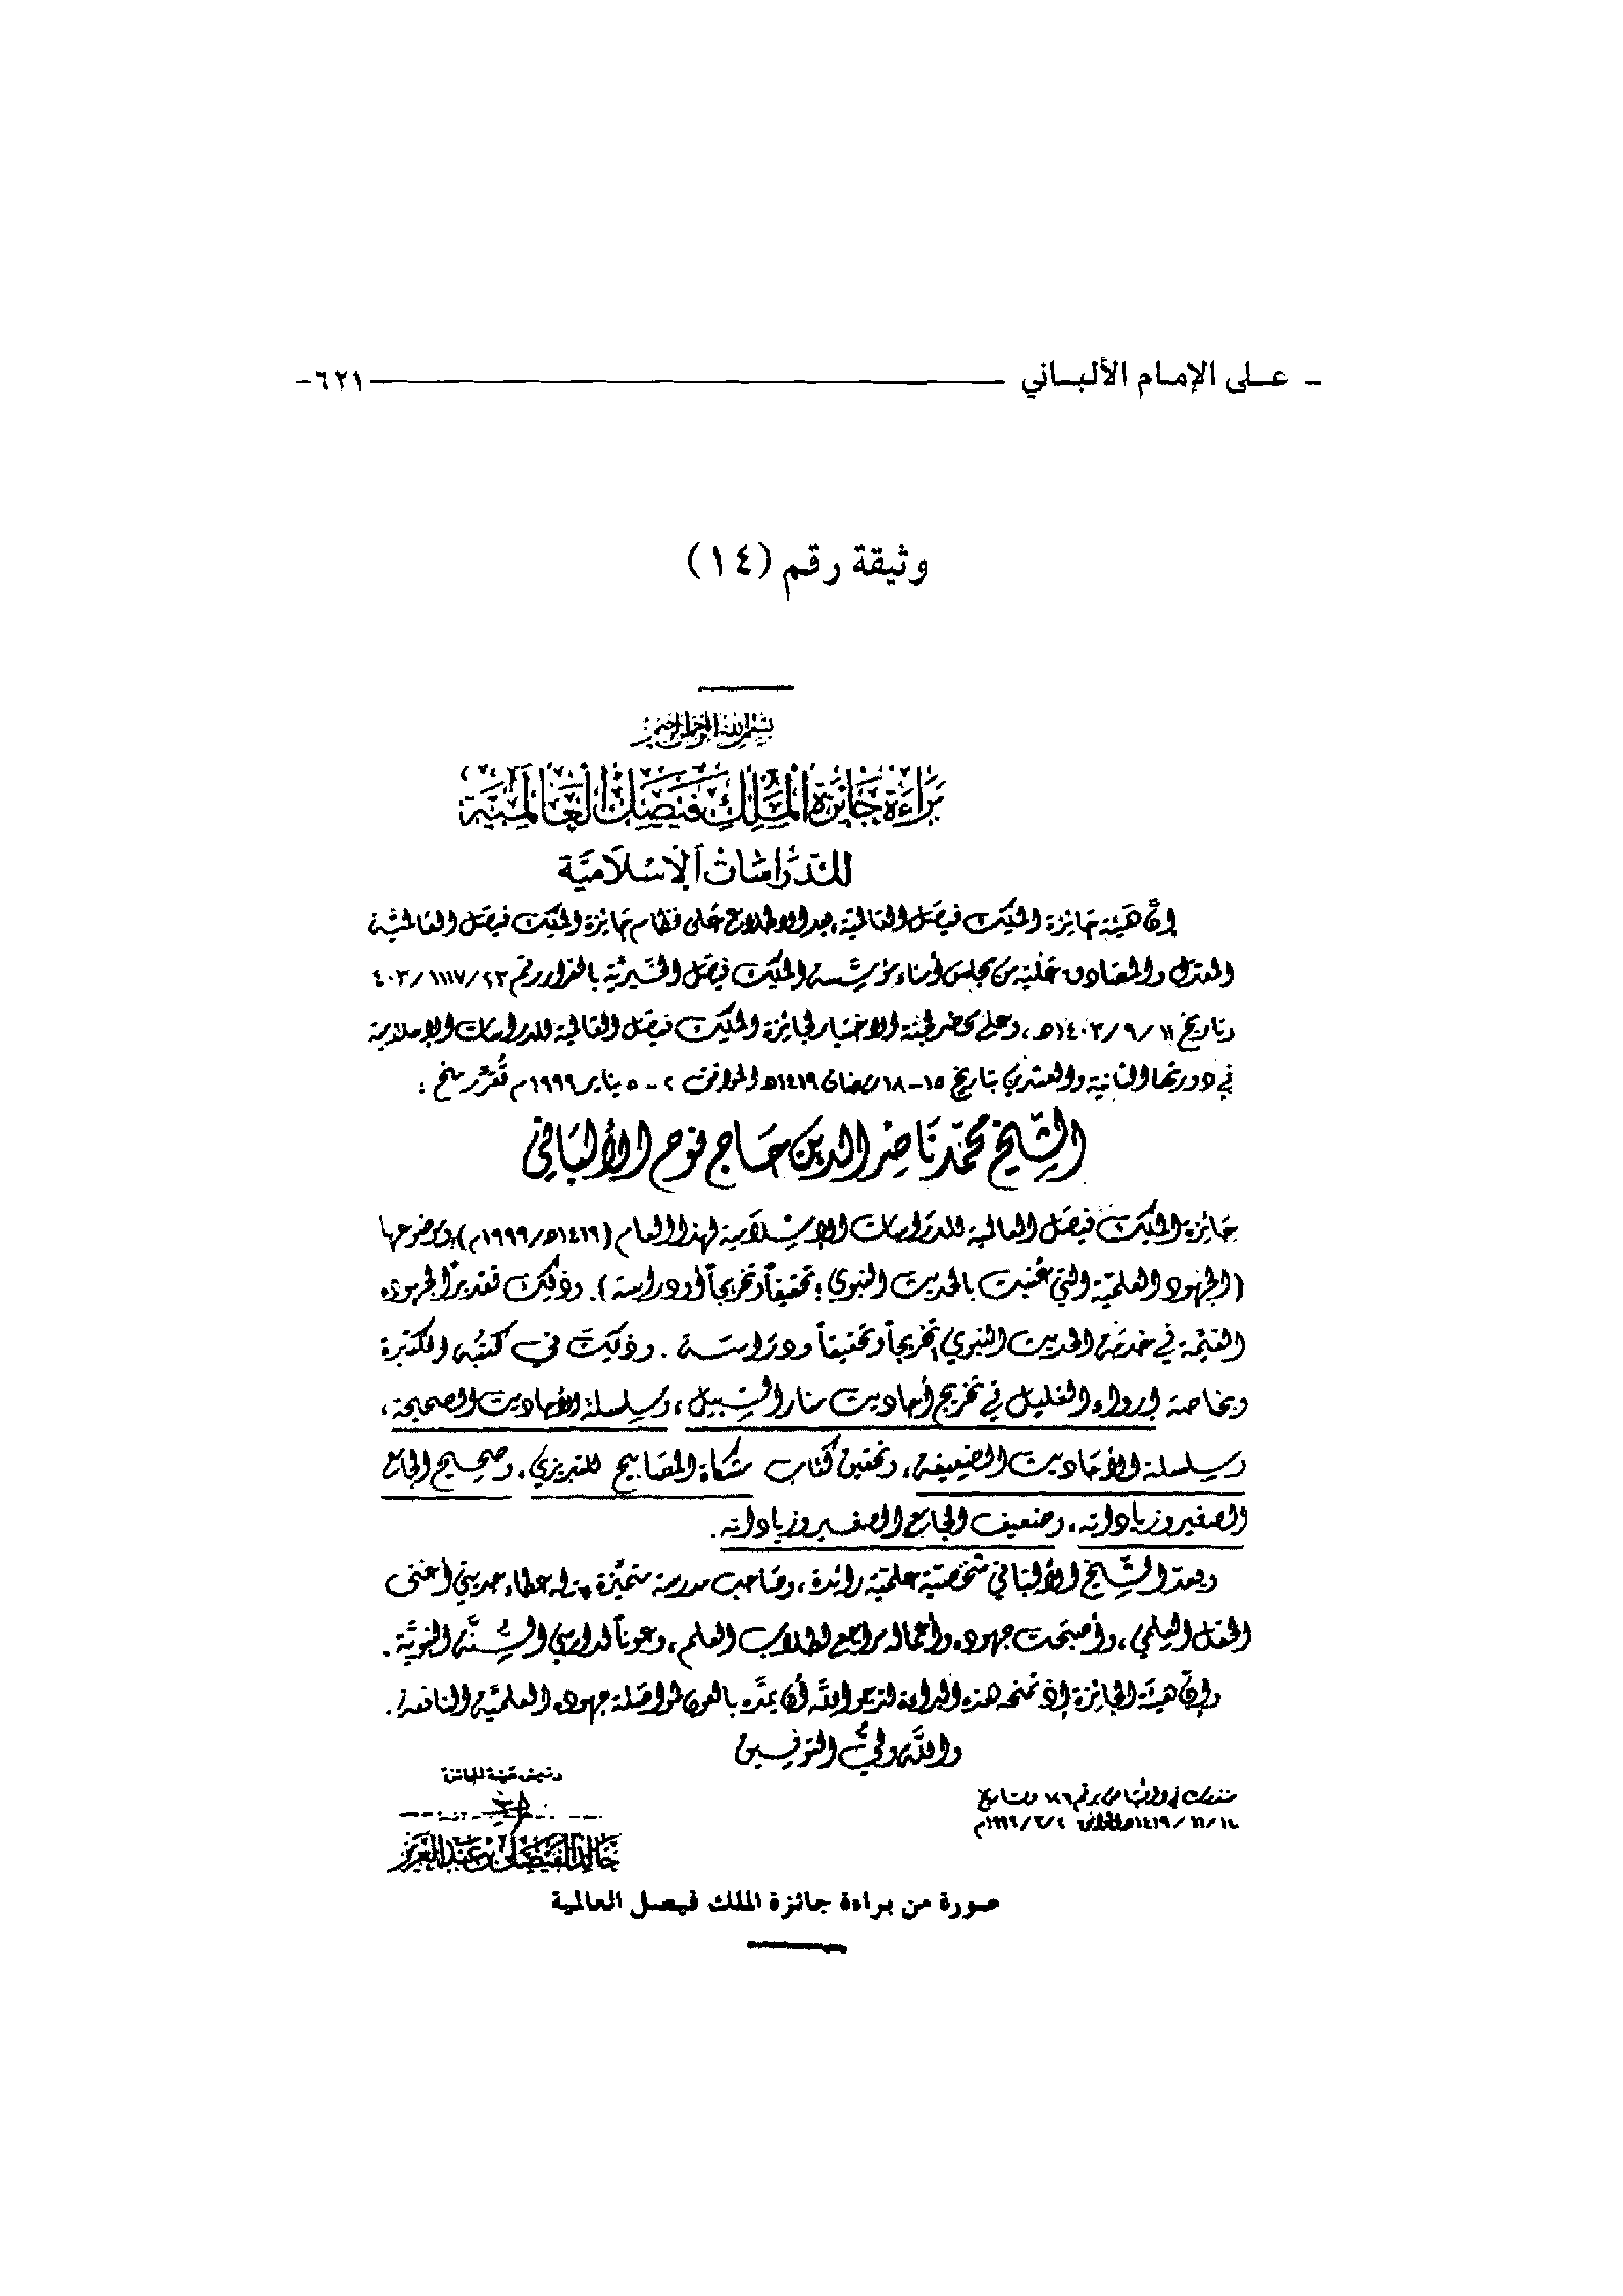 - علـى الإمـام الألبـاني -٦٢١-
وثيقة رقم (١٤)
بسم الله الرحمن الرحيم
بَرَاءَة جَائِزَة المَلِك فَيصَل العَالَمِيَّة
للدِّرَاسَات الإسْلَامِيَّة
إنَّ هَيئة جَائزة الملِك فيصَل العَالميّة، بعد الاطلاع عَلى نظام جَائزة الملِك فيصَل العَالميَّة
المعدَّل والمصَادق عَليه من مجلس أمناء مؤسَّسة الملِك فيصَل الخيريَّة بالقرار رقم ٤٠٣/١١١٧/٢٣
وتاريخ ١٤٠٣/٩/١١هـ، وعلى محضر لجنة الاختيار لجائزة الملِك فيصَل العَالمية للدراسات الإسلامية
في دورتها الثانية والعشرين بتاريخ ١٥-١٨ رمضان ١٤١٩هـ الموافق ٢-٥ يناير ١٩٩٩م تُقرِّر منح:
الشَّيخ محمَّد نَاصِر الدين حَاج نوح الألبَاني
جَائزة الملِك فيصَل العالمية للدرَاسات الإسْلَامية لهذا العام (١٤١٩هـ/١٩٩٩م) وموضوعها
(الجهود العلميّة التي عُنيت بالحديث النبوي؛ تحقيقاً وتخريجاً أو دراسة). وذلك تقديراً لجهوده
القيّمة في خدمة الحديث النبوي تخريجاً وتحقيقاً ودرَاسة. وذلكَ في كتبُه الكثيرة
وبخاصة إرواء الغليل في تخريج أحاديث منار السَّبيل، وسلسلة الأحاديث الصحيحة،
وسلسلة الأحَاديث الضعيفة، وتحقيق كتاب مشكاة المصَابيح للتبريزي، وصحيح الجامع
الصغير وزياداته، وضعيف الجامع الصغير وزياداته.
ويعدّ الشَّيخ الألبَاني شخصيَّة علميّة رائدة، وصَاحب مدرسة متميِّزة، وله عطاء حديثي أغنى
الحقل العِلمي، وأصبَحت جهوده وأعماله مراجع لطلاب العلم، وعوناً لدارسي السُّنَّة النبويَّة.
وإنَّ هيئَة الجائزة إذ تمنحه هذه البراءة لترجو اللَّه أن يمدَّه بالعون لمواصَلة جهوده العلميَّة النافعة.
واللَّه وليُّ التوفيق
رئيس هَيئة الجائزة
١٤١٩/١١/١٤هـ الموافق ١٩٩٩/٣/٢م
خَالِد الفَيصَل بن عَبد العَزيز
صورة من براءة جائزة الملك فيصل العالمية